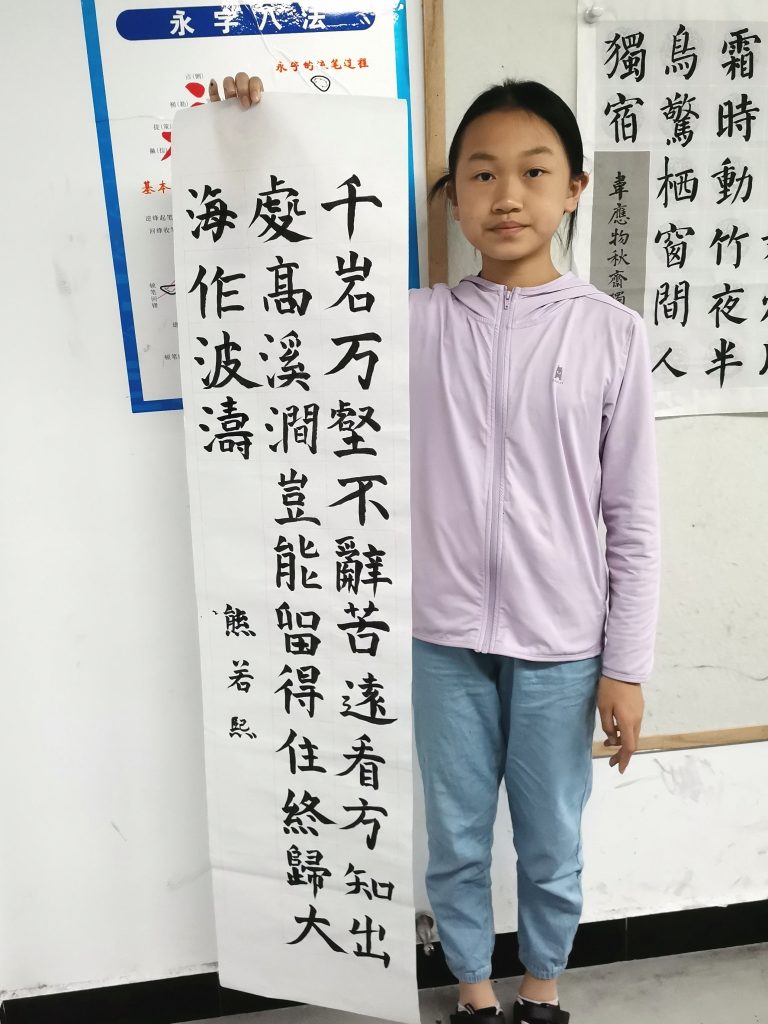 永字八法
永字的运笔过程
点(侧)
横(勒)
提(策)
基本
逆锋起笔
回锋收笔
千岩万壑不辭苦遠看方知出
處高溪澗豈能留得住終歸大
海作波濤
熊若熙
霜時動竹夜半
鳥驚栖窗間人
獨宿
韋應物秋齋獨